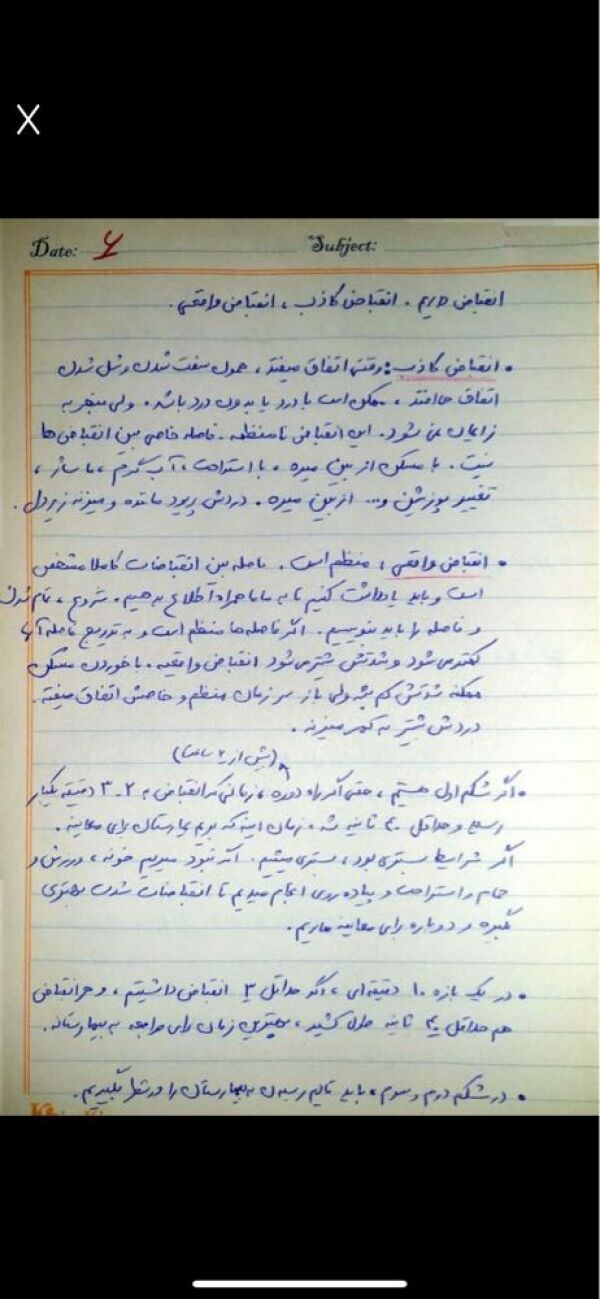 X
Date: ۶ Subject:
انقباض داریم. انقباض کاذب، انقباض واقعی.
• انقباض کاذب: وقتی اتفاق میفتد، همون سفت شدن و شل شدن
اتفاق می‌افتد، ممکن است با درد یا بدون درد باشد. ولی منجر به
زایمان نمی شود. این انقباض نامنظمه. فاصله خاصی بین انقباض ها
نیست. با مسکن از بین میره. با استراحت، آب گرم، ماساژ،
تغییر پوزیشن و... از بین میره. دردش پریود ماننده و میزنه زیر دل.
• انقباض واقعی: منظم است. فاصله بین انقباضات کاملا مشخص
است و باید یادداشت کنیم تا به ماما همراه اطلاع بدهیم. شروع، تمام شدن
و فاصله را باید بنویسیم. اگر فاصله ها منظم است و به تدریج فاصله آنها
کمتر می شود و شدتش بیشتر می شود انقباض واقعیه. با خوردن مسکن
ممکنه شدتش کم بشه ولی باز سر زمان منظم و خاصش اتفاق میفته.
دردش بیشتر به کمر میزنه.
(بیش از ۲ ساعت)
• اگر شکم اولی هستیم، حتی اگر راه دوره، زمانی که انقباض به ۲-۳ دقیقه یکبار
رسید و حداقل ۴۰ ثانیه شد، زمان اینه که بریم بیمارستان برای معاینه.
اگر شرایط بستری بود، بستری میشیم. اگه نبود میریم خونه، ورزش و
حمام و استراحت و پیاده روی انجام میدیم تا انقباضات شدت بیشتری
بگیره و دوباره برای معاینه میاریم.
• در یک بازه ۱۰ دقیقه ای، اگر حداقل ۳ انقباض داشتیم، و هر انقباض
هم حداقل ۴۰ ثانیه طول کشید، بهترین زمان برای مراجعه به بیمارستانه.
• در شکم دوم و سوم، باید تایم رسیدن به بیمارستان را در نظر بگیریم.